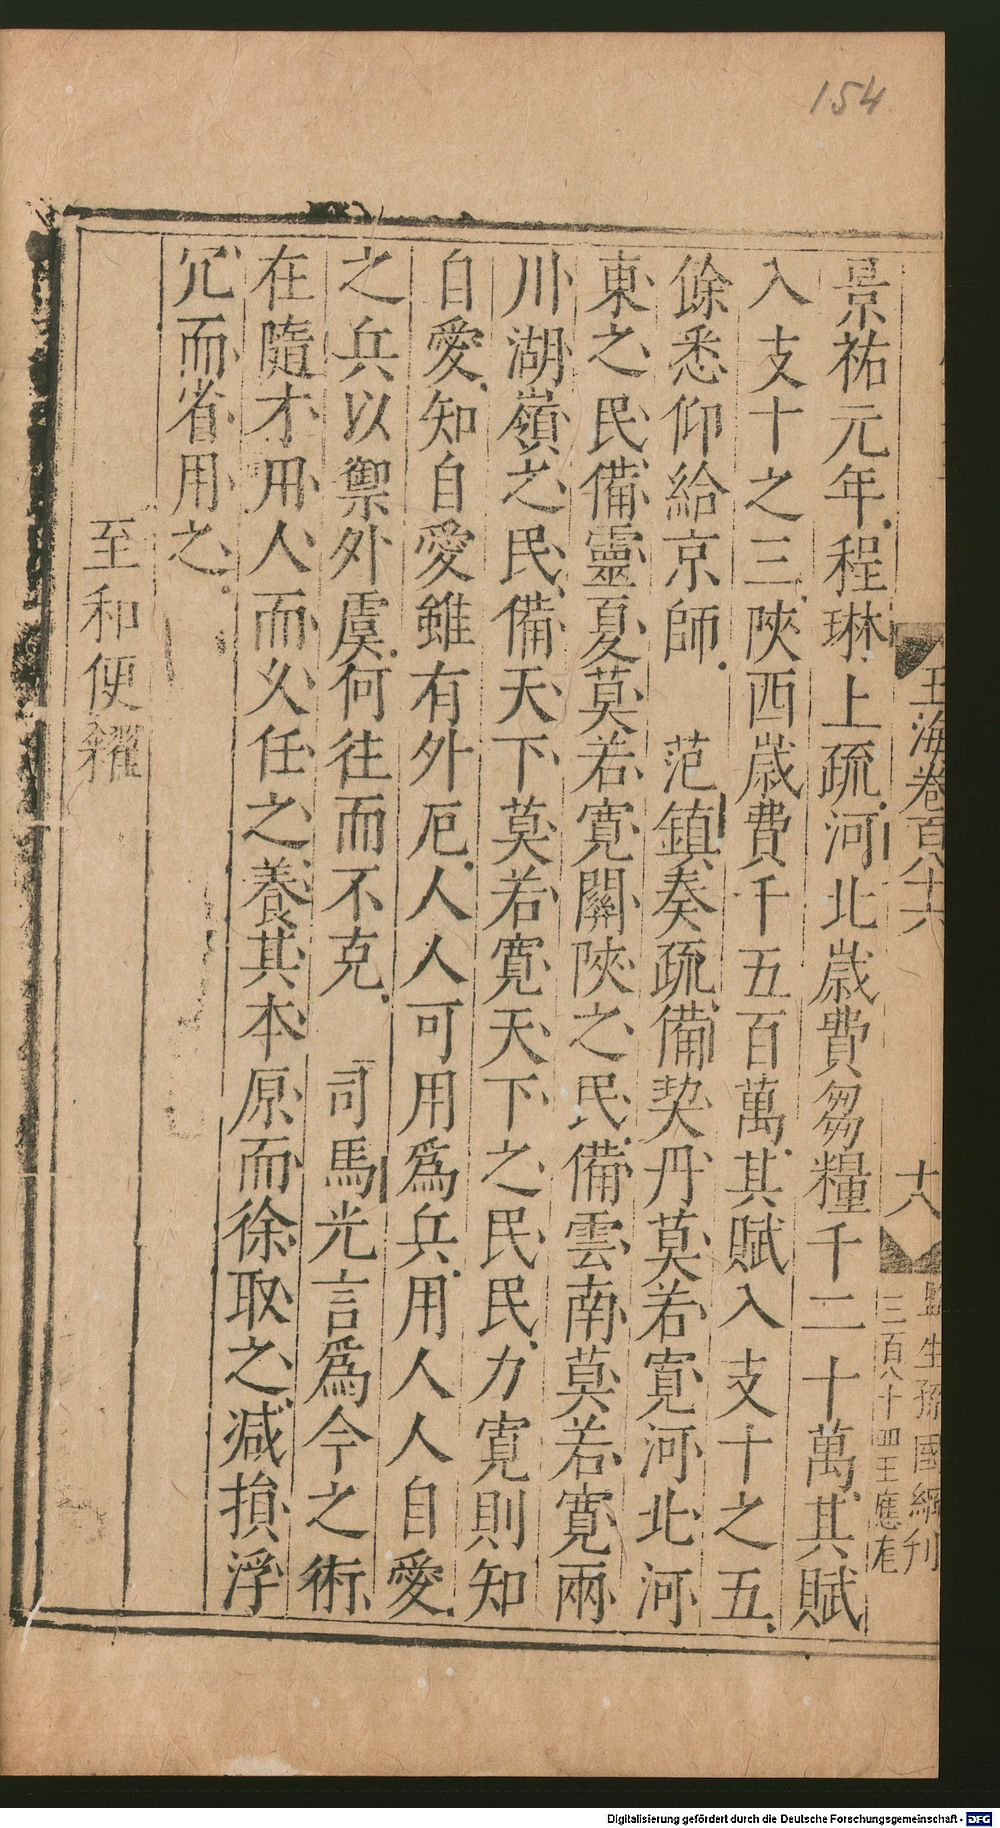 154
玉海卷百八十六
十八
監生孫國綱刊
三百八十四王應
景祐元年程琳上疏河北歲費芻糧千二十萬其賦
入支十之三陝西歲費千五百萬其賦入支十之五
餘悉仰給京師　范鎮奏疏備契丹莫若寛河北河
東之民備靈夏莫若寛關陝之民備雲南莫若寛兩
川湖嶺之民備天下莫若寛天下之民民力寛則知
自愛知自愛雖有外厄人人可用爲兵用人人自愛
之兵以禦外虞何往而不克　司馬光言爲今之術
在隨才用人而久任之養其本原而徐取之减損浮
冗而省用之
至和便糴
Digitalisierung gefördert durch die Deutsche Forschungsgemeinschaft - DFG